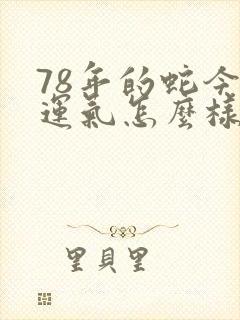 78年的蛇今
運氣怎麼樣
里貝里